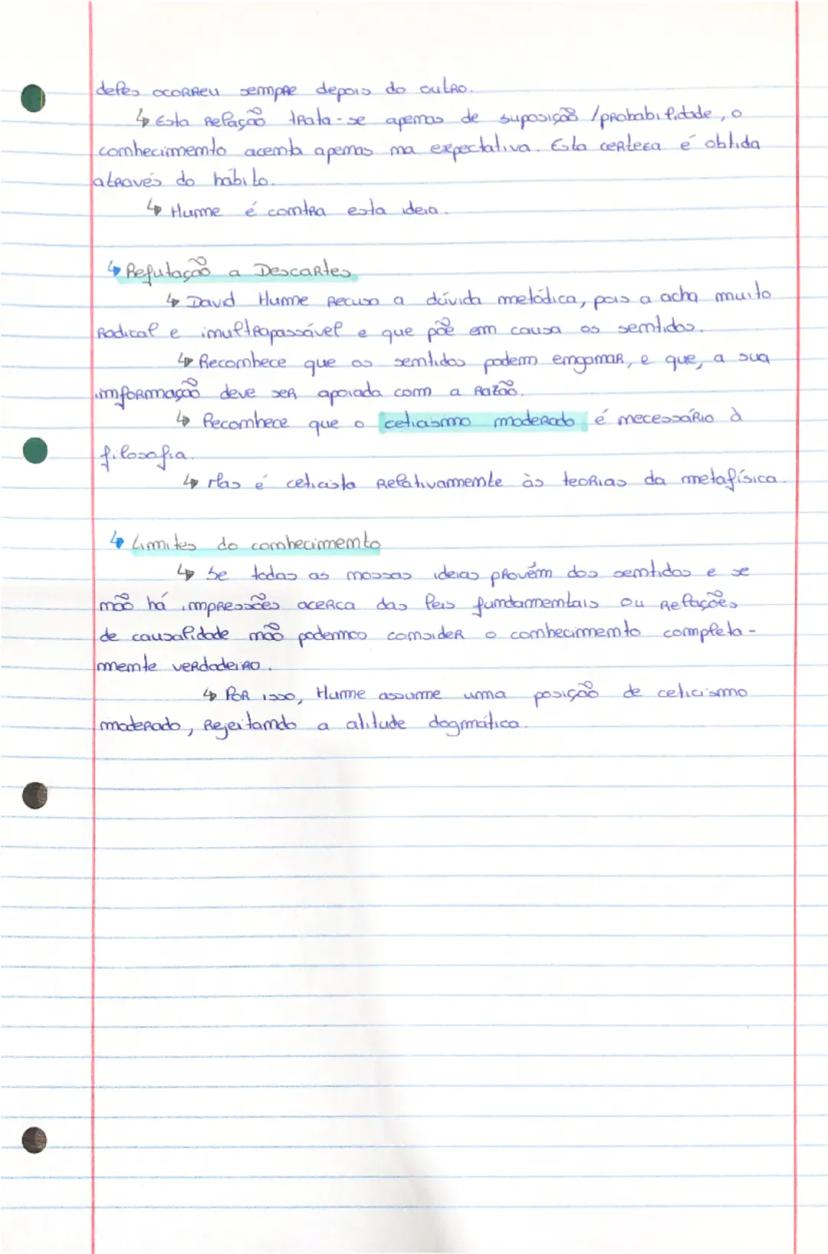 deles ocorreu sempre depois do outro.
↳ Esta relação trata-se apenas de suposição/probabilidade, o
conhecimento acenta apenas na expectativa. Esta certeza é obtida
através do hábito.
↳ Hume é contra esta ideia.
↳ Refutação a Descartes
↳ David Hume recusa a dúvida metódica, pois a acha muito
radical e inultrapassável e que põe em causa os sentidos.
↳ Reconhece que os sentidos podem enganar, e que, a sua
informação deve ser apoiada com a razão.
↳ Reconhece que o ceticismo moderado é necessário à
filosofia.
↳ Mas é ceticista relativamente às teorias da metafísica.
↳ Limites do conhecimento
↳ Se todas as nossas ideias provêm dos sentidos e se
não há impressões acerca das leis fundamentais ou relações
de causalidade não podemos consider o conhecimento completa-
mente verdadeiro.
↳ Por isso, Hume assume uma posição de ceticismo
moderado, rejeitando a atitude dogmática.